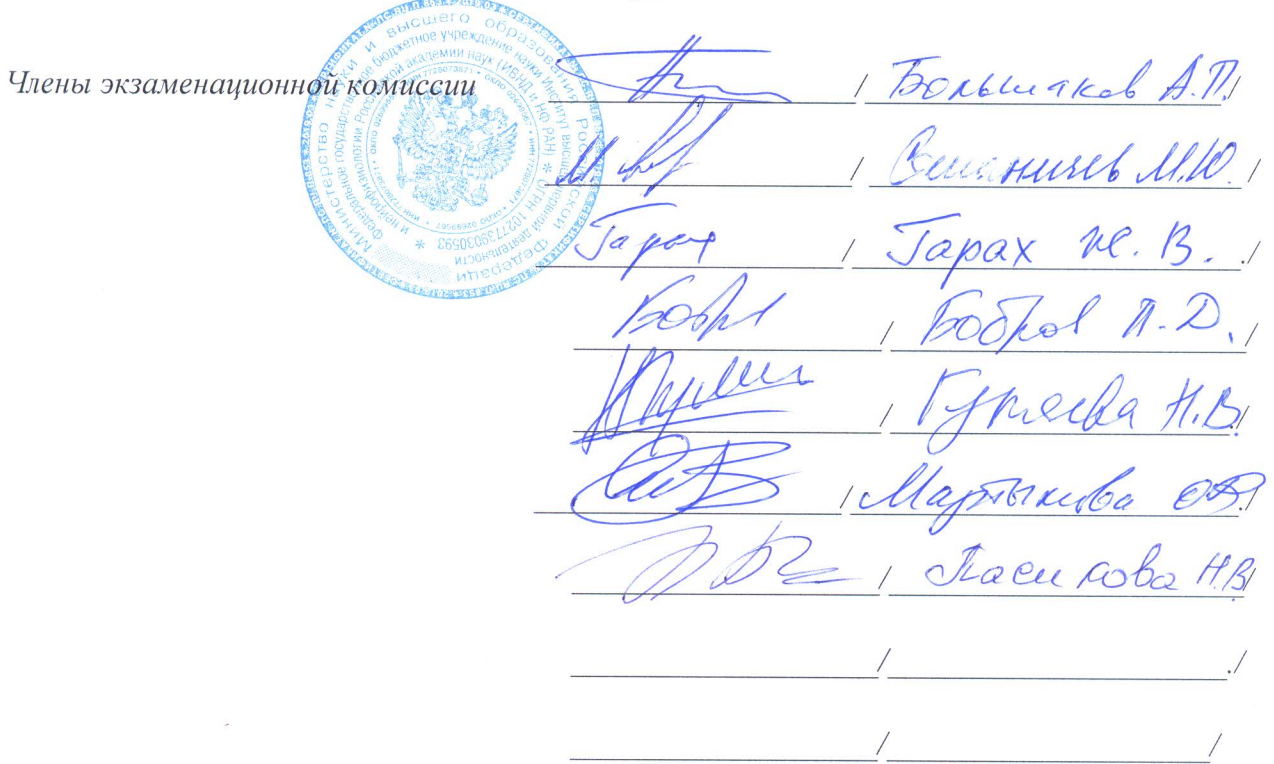 Члены экзаменационной комиссии
/ Большаков А.П. /
/ М.Ю. /
Гарах / Гарах Ж. В. /
/ Бобров П. Д. /
/ Гуляева Н.В. /
/ Мартынова О.В. /
/ Пасикова Н.В. /
Министерство науки и высшего образования Российской Федерации
Федеральное государственное бюджетное учреждение науки Институт высшей нервной деятельности и нейрофизиологии Российской академии наук (ИВНД и НФ РАН) * ОГРН 1027739030593 *